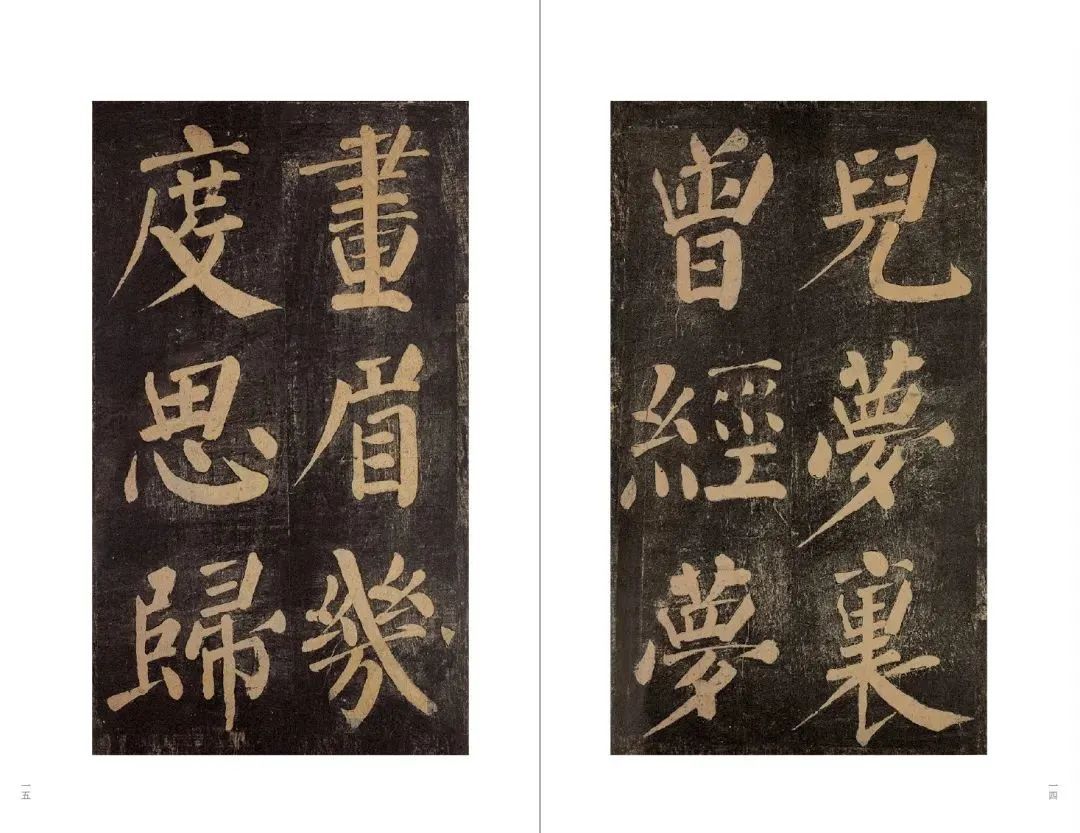 兒夢裏
曾經夢
一四
畫眉幾
度思歸
一五